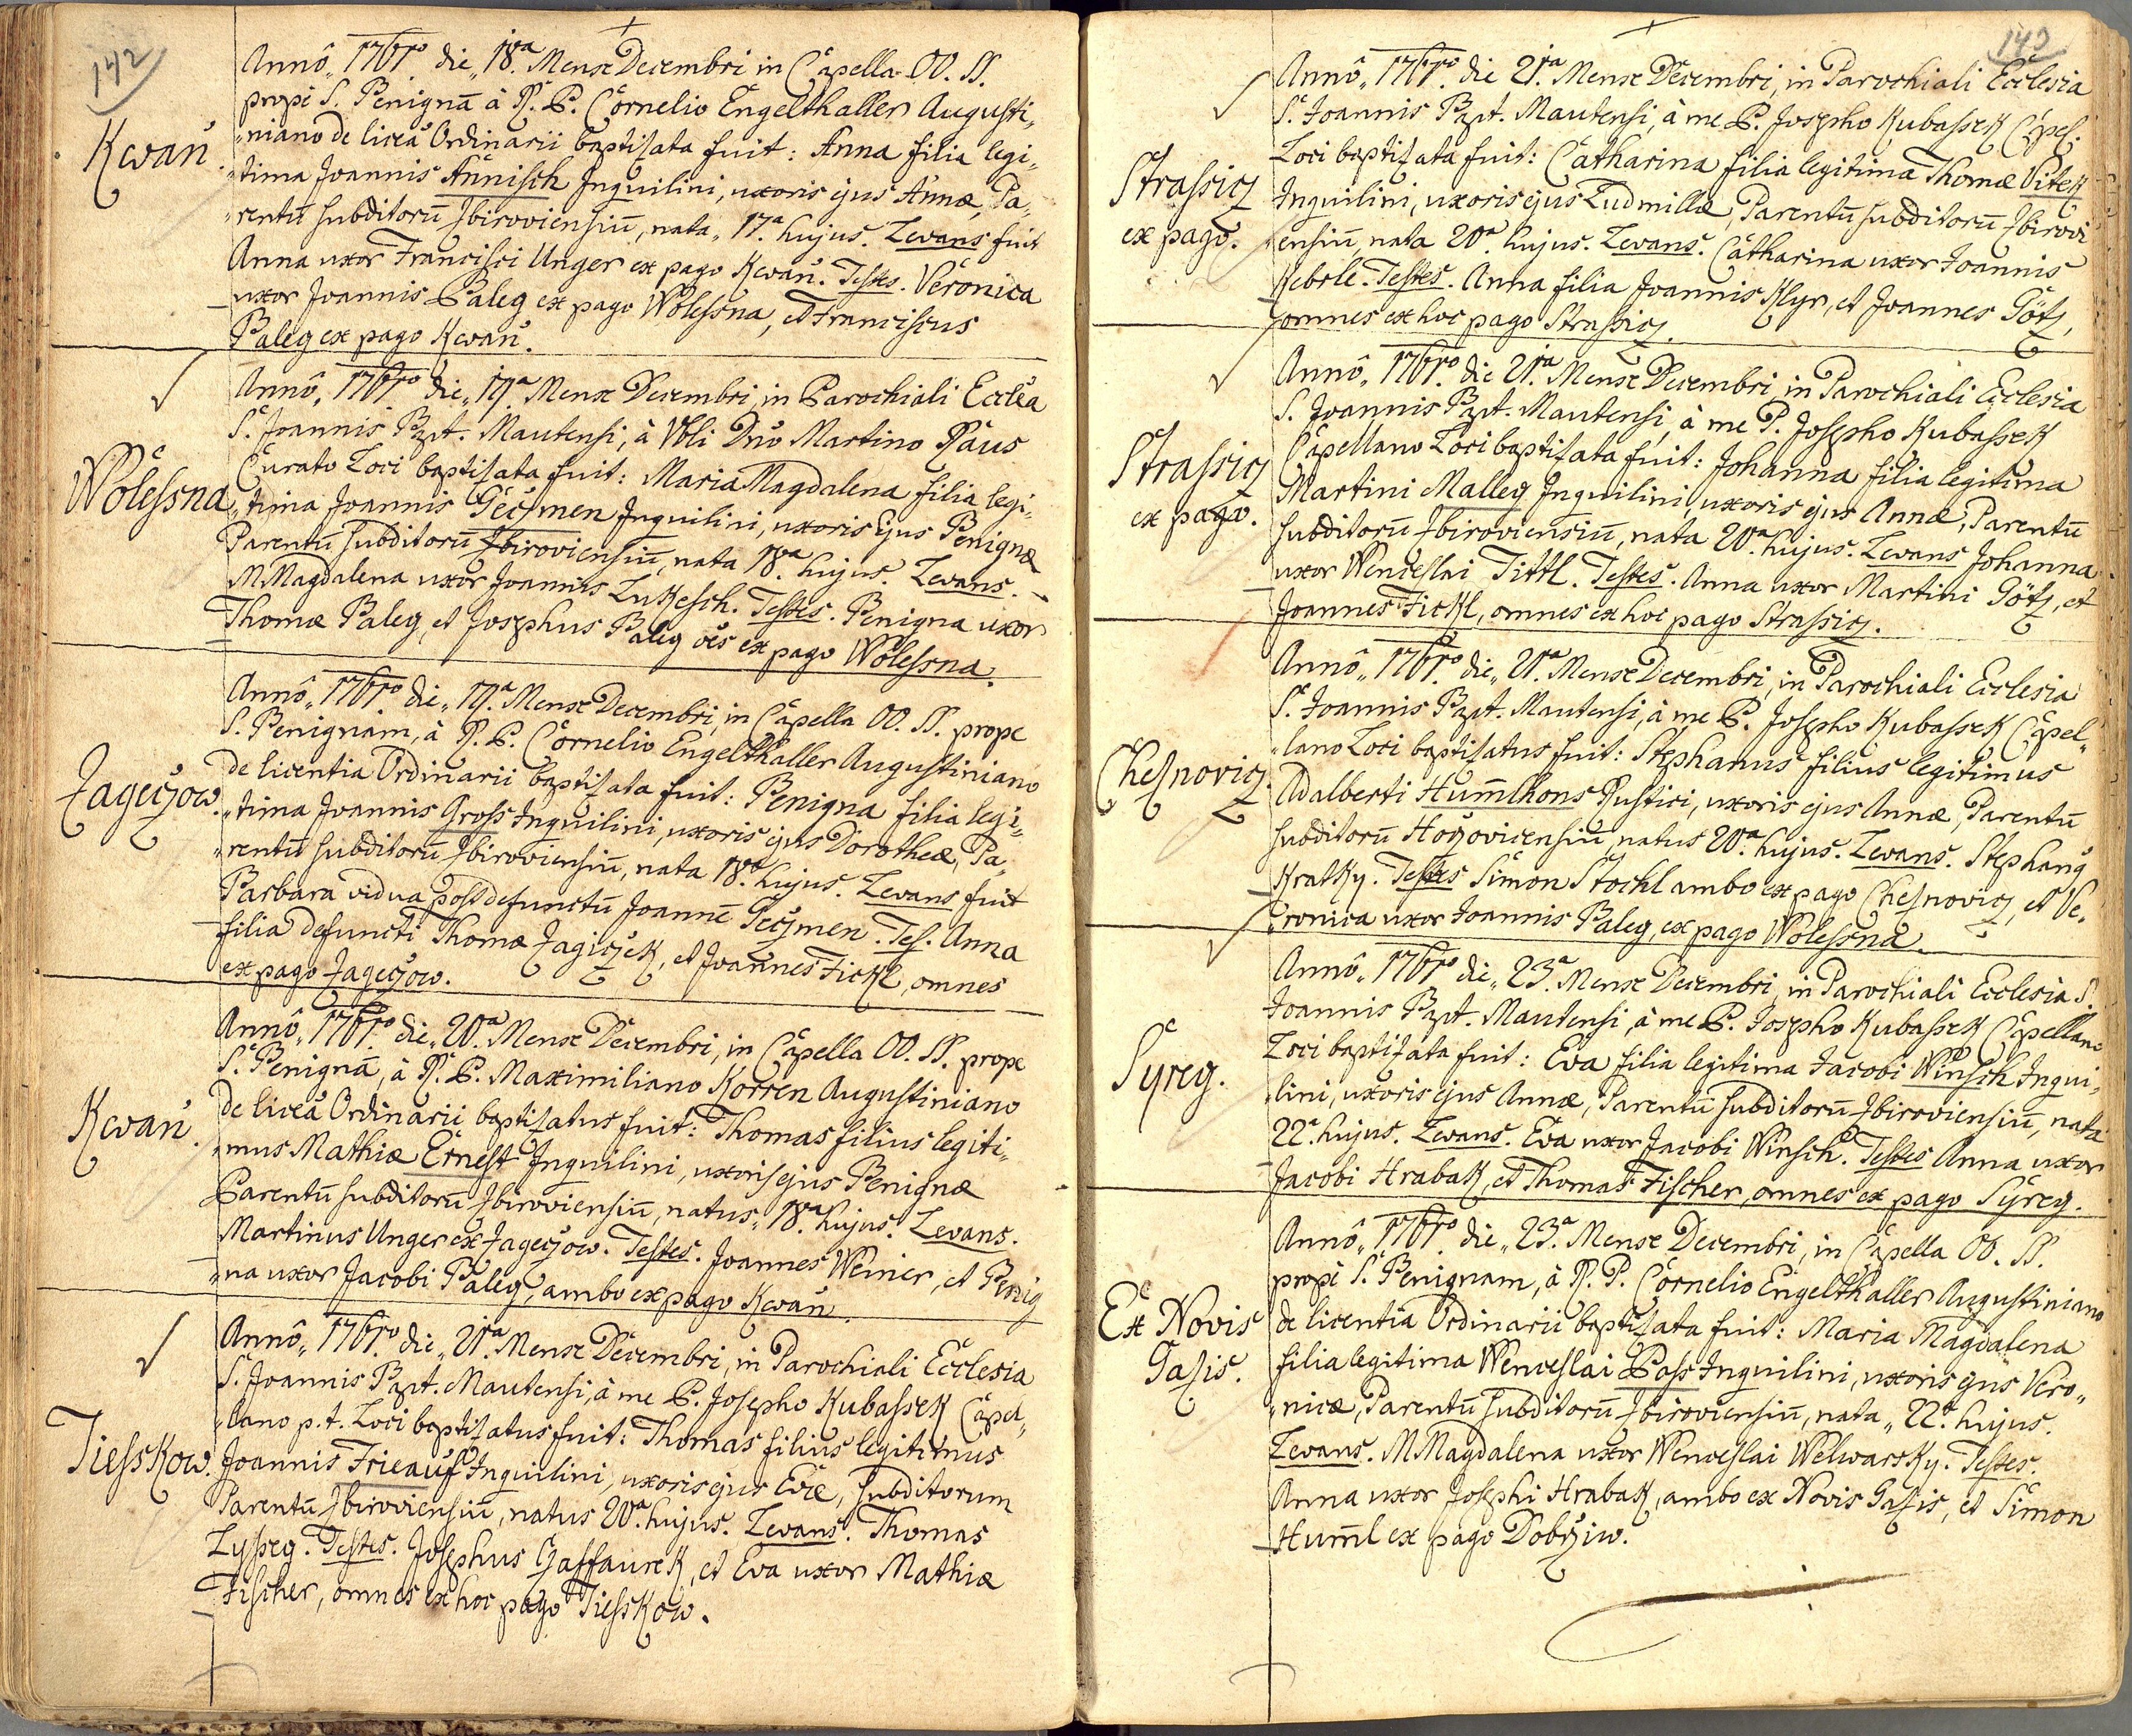 142
Kwaň.
Annô„ 1761mo die„ 18.a Mense Decembri in Capella OO. SS.
propè S. Benignā à R. P. Cornelio Engelthaller Augusti„
„niano de liceā Ordinarii baptisata fuit: Anna filia legi„
„tima Joannis Annisch Inquilini, uxoris ejus Annæ, Pa„
„rentū subditorū Zbiroviensiū, nata„ 17.a hujus. Levans fuit
Anna uxor Francisci Unger ex pago Kwaň. Testes. Veronica
uxor Joannis Baleg ex pago Wolessna, et Franciscus
Baleg ex pago Kwaň.
Wolessna
Annô„ 1761mo die„ 19.a Mense Decembri, in Parochiali Ecclēa
S. Joannis Bapt. Mautensi, à Vbli Dno Martino Raus
Curato Loci baptisata fuit: Maria Magdalena filia legi„
„tima Joannis Geczmen Inquilini, uxoris ejus Benignæ
Parentū subditorū Zbiroviensiū, nata 18.a hujus. Levans.
M Magdalena uxor Joannis Lukesch. Testes. Benigna uxor
Thomæ Baleg, et Josephus Baleg oēs ex pago Wolessna.
Jageczow.
Annô„ 1761mo die„ 19.a Mense Decembri, in Capella OO. SS. prope
S. Benignam, à R. P. Cornelio Engelthaller Augustiniano
de licentia Ordinarii baptisata fuit: Benigna filia legi„
„tima Joannis Gross Inquilini, uxoris ejus Dorotheæ, Pa„
„rentū subditorū Zbiroviensiū, nata 18.a hujus. Levans fuit
Barbara vidua post defunctū Joannē Geczmen. Tes. Anna
filia defuncti Thomæ Jagiczek, et Joannes Fickl, omnes
ex pago Jageczow.
Kwaň.
Annô„ 1761mo die„ 20.a Mense Decembri, in Capella OO. SS. prope
S. Benignā, à R. P. Maximiliano Korren Augustiniano
de liceā Ordinarii baptisatus fuit: Thomas filius legiti„
„mus Mathiæ Ernest Inquilini, uxoris ejus Benignæ
Parentū subditorū Zbiroviensiū, natus„ 18.a hujus. Levans.
Martinus Unger ex Jageczow. Testes. Joannes Weiner, et Benig
„na uxor Jacobi Baleg, ambo ex pago Kwaň.
Tiesskow.
Annô„ 1761mo die„ 21.a Mense Decembri, in Parochiali Ecclesia
S. Joannis Bapt. Mautensi, à me P. Josepho Kubassek Capel„
„lano p. t. Loci baptisatus fuit: Thomas filius legitimus
Joannis Frieauf Inquilini, uxoris ejus Evæ, subditorum
Parentū Zbiroviensiū, natus 20.a hujus. Levans. Thomas
Lysseg. Testes. Josephus Gaffaurek, et Eva uxor Mathiæ
Fischer, omnes ex hoc pago Tiesskow.
143
Strassicz
ex pago.
Annô„ 1761mo die 21.a Mense Decembri, in Parochiali Ecclesia
S. Joannis Bapt. Mautensi, à me P. Josepho Kubassek Capel.
Loci baptisata fuit: Catharina filia legitima Thomæ Vitek
Inquilini, uxoris ejus Ludmillæ, Parentū subditorū Zbirovi
„ensiū, nata 20.a hujus. Levans. Catharina uxor Joannis
Kebrle. Testes. Anna filia Joannis Klyr, et Joannes Götz,
omnes ex hoc pago Strassicz.
Strassicz
ex pago.
Annô„ 1761mo die 21.a Mense Decembri, in Parochiali Ecclesia
S. Joannis Bapt. Mautensi, à me P. Josepho Kubassek
Capellano Loci baptisata fuit: Johanna filia legitima
Martini Malleg Inquilini, uxoris ejus Annæ, Parentū
subditorū Zbiroviensiū, nata 20.a hujus. Levans Johanna
uxor Wenceslai Tittl. Testes. Anna uxor Martini Götz, et
Joannes Fickl, omnes ex hoc pago Strassicz.
Chesnovicz.
Annô„ 1761mo die„ 21.a Mense Decembri, in Parochiali Ecclesia
S. Joannis Bapt. Mautensi, à me P. Josepho Kubassek Capel„
„lano Loci baptisatus fuit: Stephanus filius legitimus
Adalberti Hum̄lhons Rustici, uxoris ejus Annæ, Parentū
subditorū Horžovicensiū, natus 20.a hujus. Levans. Stephang
Kratky. Testes Simon Stochl ambo ex pago Chesnovicz, et Ve„
„ronica uxor Joannis Baleg, ex pago Wolessna.
Syreg.
Annô„ 1761mo die„ 23.a Mense Decembri, in Parochiali Ecclesia S.
Joannis Bapt. Mautensi, à me P. Josepho Kubassek Capellano
Loci baptisata fuit: Eva filia legitima Jacobi Winsch Inqui„
„lini, uxoris ejus Annæ, Parentū subditorū Zbiroviensiū, nata
22.a hujus. Levans. Eva uxor Jacobi Winsch. Testes Anna uxor
Jacobi Hrabak, et Thomas Fischer, omnes ex pago Syreg.
Ex Novis
Casis.
Annô„ 1761mo die„ 23.a Mense Decembri, in Capella OO. SS.
propè S. Benignam, à R. P. Cornelio Engelthaller Augustiniano
de licentia Ordinarii baptisata fuit: Maria Magdalena
filia legitima Wenceslai Poss Inquilini, uxoris ejus Vero„
„nicæ, Parentū subditorū Zbiroviensiū, nata„ 22.a hujus.
Levans. M Magdalena uxor Wenceslai Welwarsky. Testes.
Anna uxor Josephi Hrabak, ambo ex Novis Casis, et Simon
Hum̄l ex pago Dobrziw.